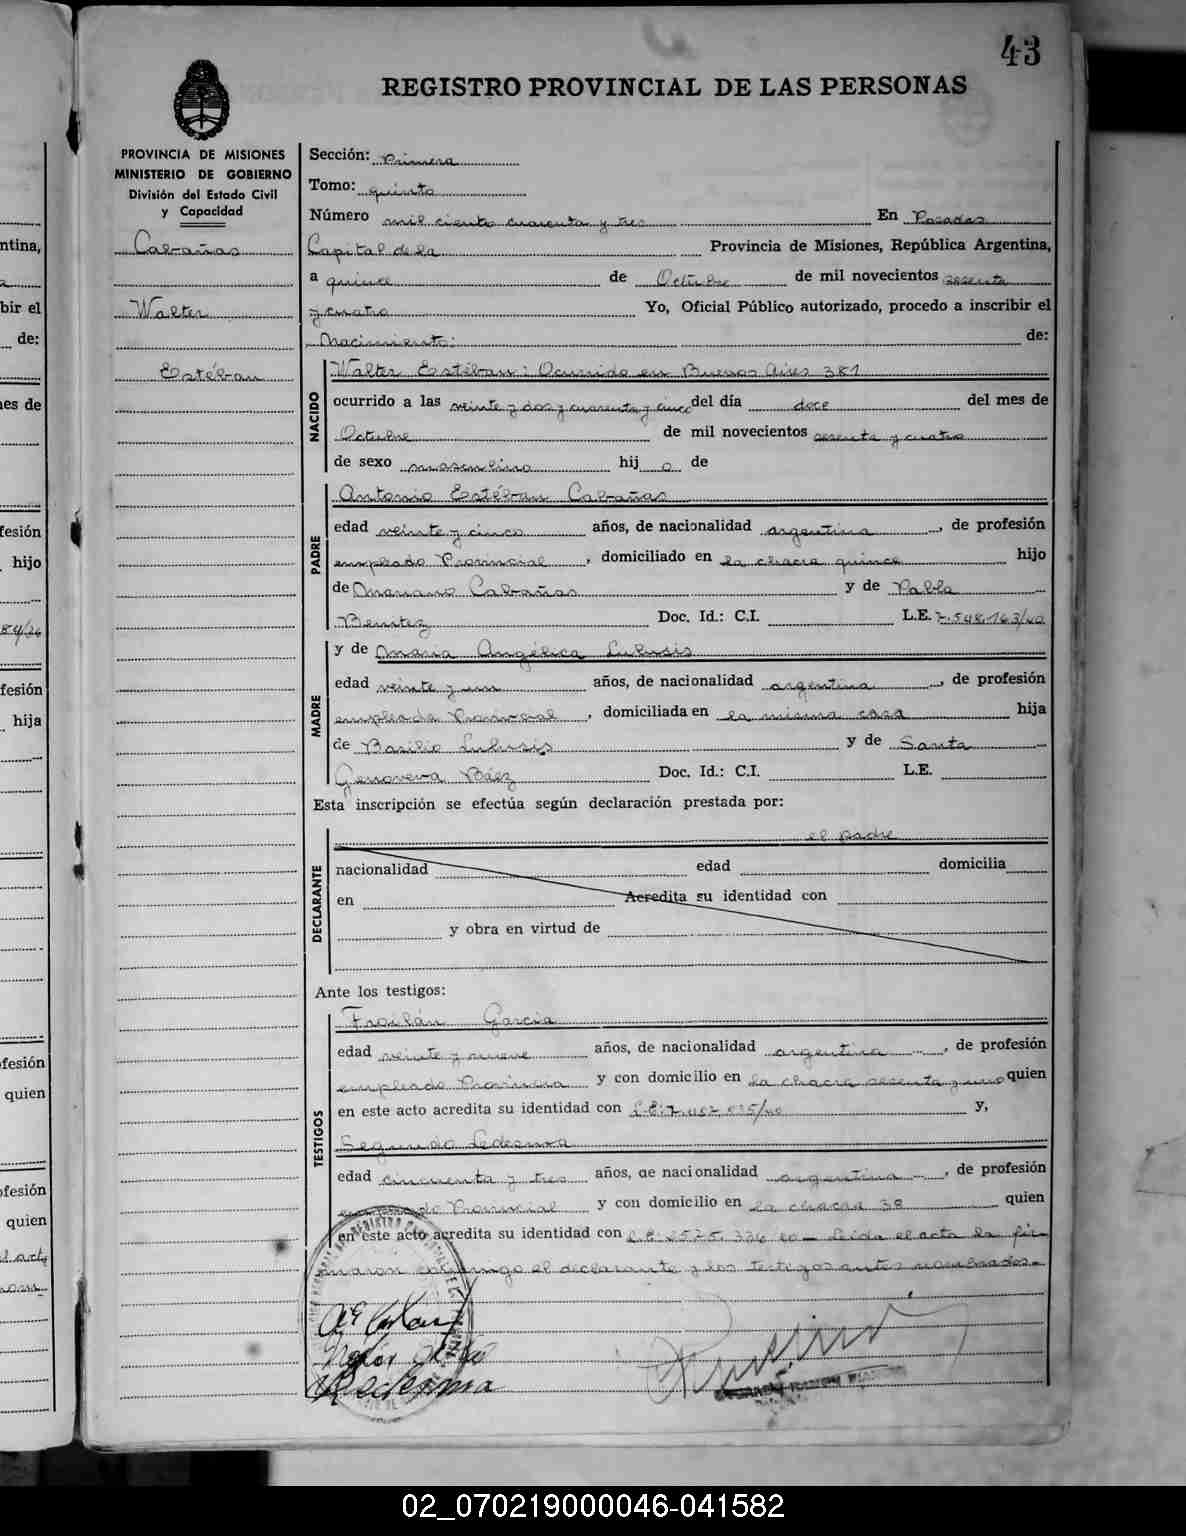 43
REGISTRO PROVINCIAL DE LAS PERSONAS
PROVINCIA DE MISIONES
MINISTERIO DE GOBIERNO
División del Estado Civil
y Capacidad
Cabañas
Walter
Estéban
Sección: Primera
Tomo: quinto
Número mil ciento cuarenta y tres En Posadas
Capital de la Provincia de Misiones, República Argentina,
a quince de Octubre de mil novecientos sesenta
y cuatro Yo, Oficial Público autorizado, procedo a inscribir el
Nacimiento: de:
NACIDO
Walter Estéban: Ocurrido en Buenos Aires 381
ocurrido a las veinte y dos y cuarenta y cinco del día doce del mes de
Octubre de mil novecientos sesenta y cuatro
de sexo masculino hij o de
PADRE
Antonio Estéban Cabañas
edad veinte y cinco años, de nacionalidad argentina, de profesión
empleado Provincial, domiciliado en la chacra quince hijo
de Mariano Cabañas y de Pabla
Benitez Doc. Id.: C.I. L.E. 7.548.163/40
MADRE
y de Maria Angélica
edad veinte y un años, de nacionalidad argentina, de profesión
empleada Provincial, domiciliada en la misma casa hija
de Basilio y de Santa
Genoveva Báez Doc. Id.: C.I. L.E.
Esta inscripción se efectúa según declaración prestada por:
DECLARANTE
el padre
nacionalidad edad domicilia
en Acredita su identidad con
y obra en virtud de
Ante los testigos:
TESTIGOS
Froilán Garcia
edad veinte y nueve años, de nacionalidad argentina, de profesión
empleado Provincia y con domicilio en la chacra sesenta y uno quien
en este acto acredita su identidad con L.E: y,
Segundo Ledesma
edad cincuenta y tres años, de nacionalidad argentina, de profesión
empleado Provincial y con domicilio en la chacra 38 quien
en este acto acredita su identidad con L.E: Leida el acta la fir-
maron conmigo el declarante y los testigos antes nombrados.-
ntina,
bir el
de:
nes de
fesión
hijo
fesión
hija
ofesión
quien
ofesión
quien
02_070219000046-041582